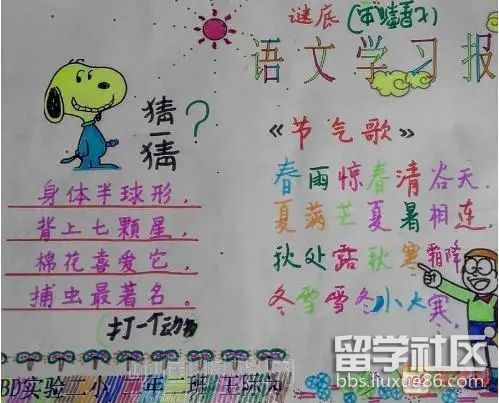 谜底
语文学习报
猜一猜?
身体半球形,
背上七颗星,
棉花喜爱它,
捕虫最著名。
打一个动物
《节气歌》
春雨惊春清谷天,
夏满芒夏暑相连,
秋处露秋寒霜降,
冬雪雪冬小大寒,
BD实验二小 二年二班
留学社区
bbs.liuxue86.com